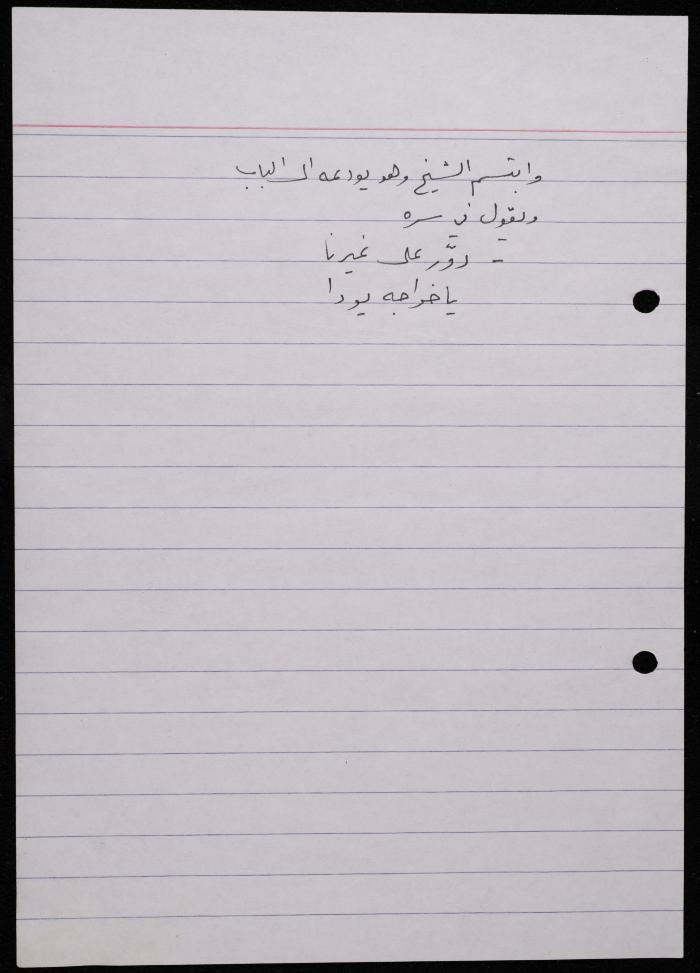 وابتسم الشيخ وهو يودعه الى الباب
ويقول في سره
- دوَّر على غيرنا
ياخواجه يودا